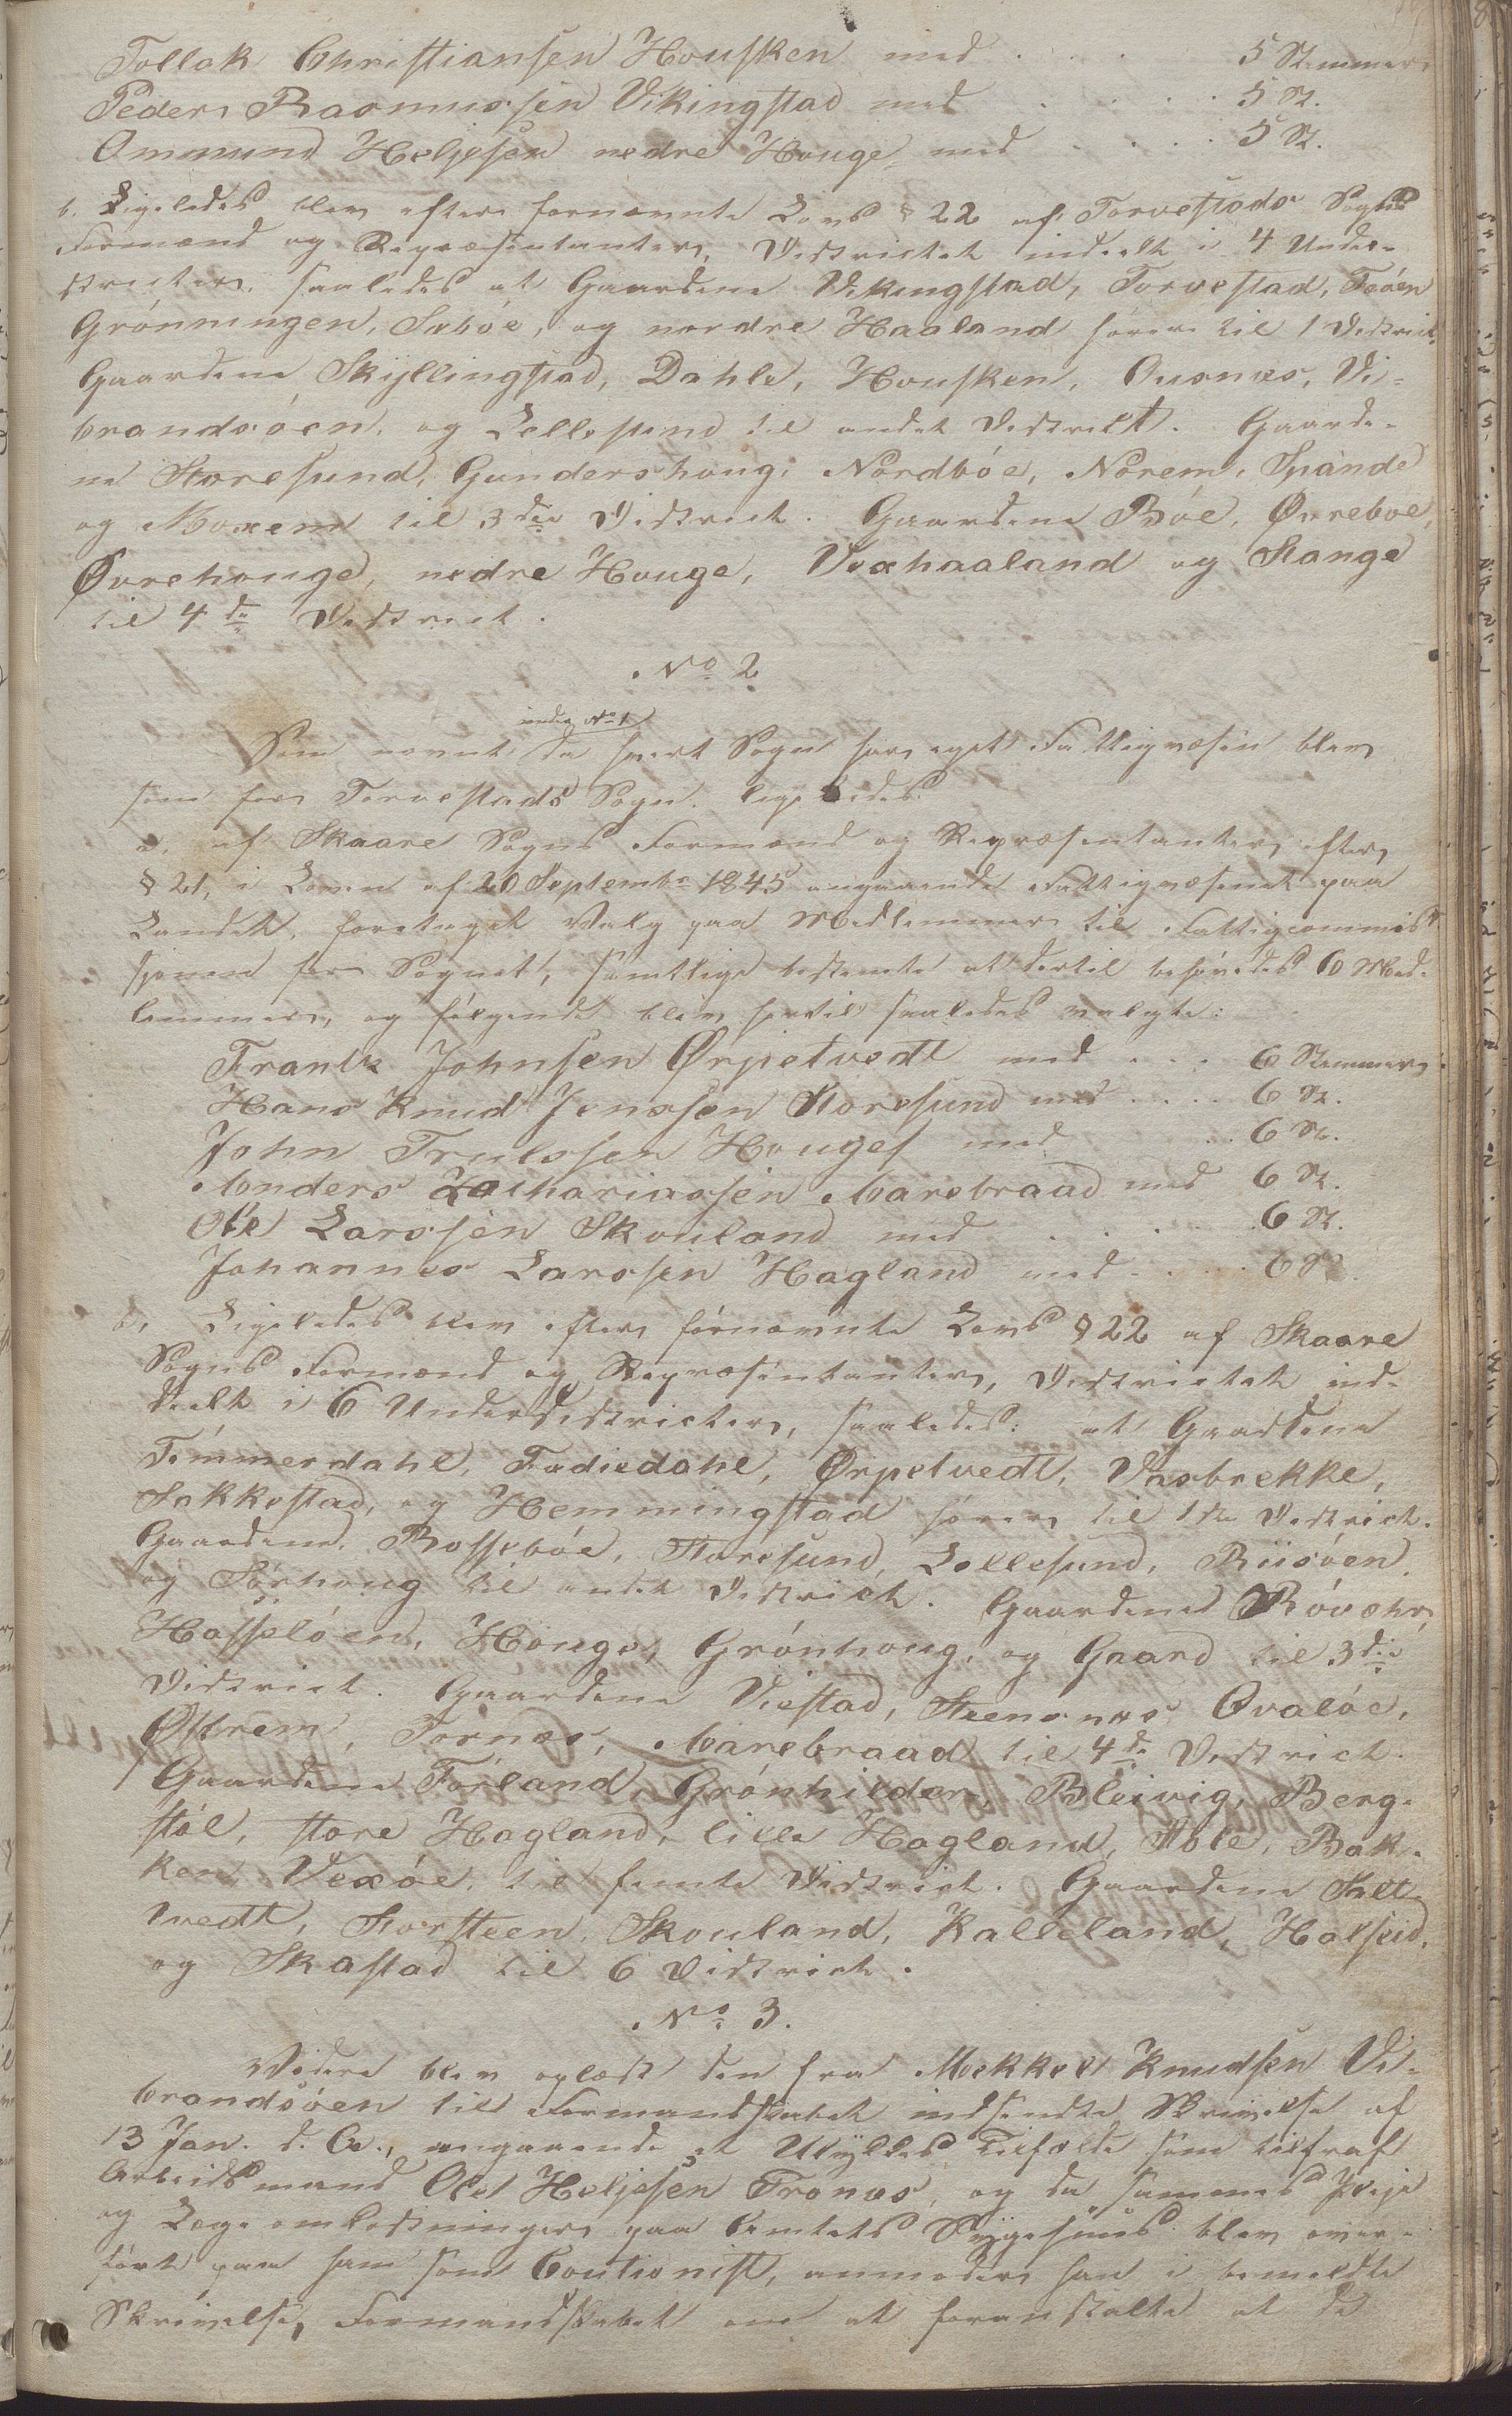 Tollak Christiansen Housken med . . . 5 Stemmer
Peder Rasmussen Vikingstad med . . . . 5 St.
Ommund Heljesen nedre Houge med . . . . 5 St.
b. Ligeledes blev efter fornævnte Lovs § 22 af Torvestads Sogns
Formænd og Repræsentanter, Districtet inddelt i 4 Under-
districter, saaledes at Gaardene Vikingstad, Torvestad, Feöen
Grönningen, Sæböe, og nordre Haaland hörer til 1 District.
Gaardene Skÿllingstad, Dahle, Housken, Ousnæs, Vi-
brandsöen, og Lillesund til andet District. Gaarde-
ne Storesund, Gundershoug, Nordböe, Norem, Spande
og Moxem til 3die District. Gaardene Böe, Øvreboe,
Øvrehouge, nedre Houge, Vexhaaland og Stange
til 4de District.
No 2
under No 1
Som nævnt da hvert Sogn har eget Fattigvæsen blev
som for Torvestads Sogn ligeledes
a. af Skaare Sogns Formænd og Repræsentanter, efter
§ 21, i Loven af 20 Septembr 1845 angaaende Fattigvæsenet paa
Landet, foretaget Valg paa Medlemmer til Fattigcommis-
sjonen for Sognet, samtlige bestemte at dertil behövedes 6 Med-
lemmer, og fölgende blev hertil saaledes valgte:
Frantz Johnsen Ørpetvedt med . . . 6 Stemmer
Hans Knud Jenssen Storesund med . . . . 6 St.
John Trulssen Houge med . . 6 St.
Anders Zachariassen Aarebraad med 6 St.
Ole Larssen Skouland med . . . . . 6 St.
Johannes Larssen Hagland med . . . . 6 St.
b. Ligeledes blev efter fornævnte Lovs § 22 af Skaare
Sogns Formænd og Repræsentanter, Districtet ind-
deelt i 6 Underdistricter, saaledes: at Gaardene
Tömmerdahl, Fodiedahl, Ørpetvedt, Vasbrekke,
Sakkestad, og Hemmingstad hörer til 1ste District.
Gaardene Rosseböe, Storesund, Lillesund, Riisöen,
og Sörhoug til andet District. Gaardene Rövæhr,
Hasselöen, Houge, Grönhoug, og Gaard til 3die
District. Gaardene Viestad, Steensnæs Qvalöe,
Østrem, Tornæs, Aarebraad til 4de District.
Gaardene Förland, Grönhilder, Bleivig, Berg-
stöl, store Hagland, lille Hagland, Stole, Bak-
ken, Vexöe, til femte District. Gaardene Kalt-
tvedt, Storsteen, Skouland, Kalleland, Halseid,
og Skastad til 6 District.
No 3.
Videre blev oplæst den fra Mekkel Knudsen Vi-
brandsöen til Formandskabet indsendte Skrivelse af
13 Jan. d. A., angaaende et Ulykkes Tilfælde som tiltraf
Arbeidsmand Ole Heljesen Trones, og da sammes Pleje
og Lægeomkostninger paa Amtets Sygehuus blev over-
fört paa ham som Coutionist, anmoder han i bemeldte
Skrivelse, Formandskabet om at foranstalte at de